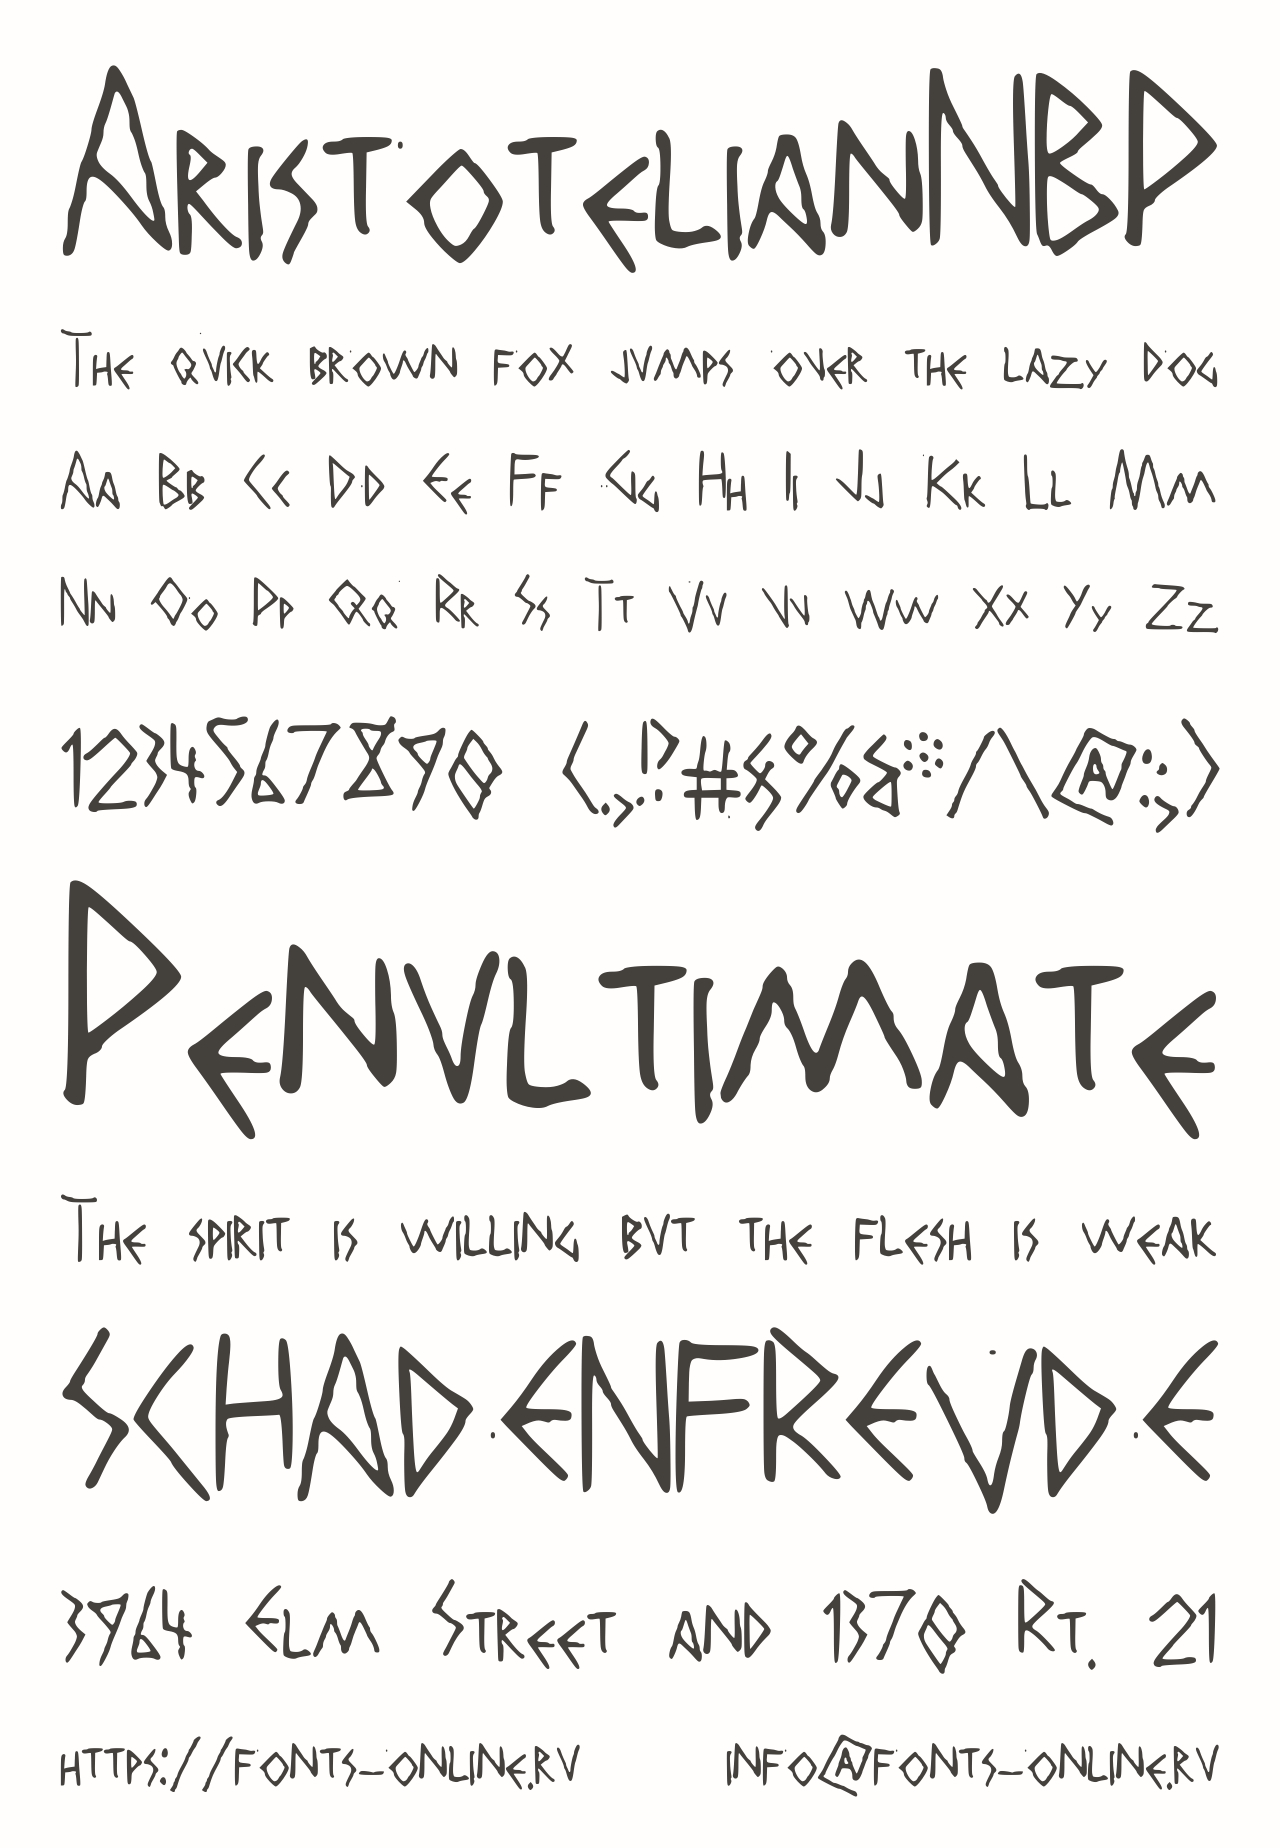 AristotelianNBP
The quick brown fox jumps over the lazy dog
Aa Bb Cc Dd Ee Ff Gg Hh Ii Jj Kk Ll Mm
Nn Oo Pp Qq Rr Ss Tt Uu Vv Ww Xx Yy Zz
1234567890 (.,!?#$%&*/\@:;)
Penultimate
The spirit is willing but the flesh is weak
SCHADENFREUDE
3964 Elm Street and 1370 Rt. 21
https://fonts-online.ru info@fonts-online.ru